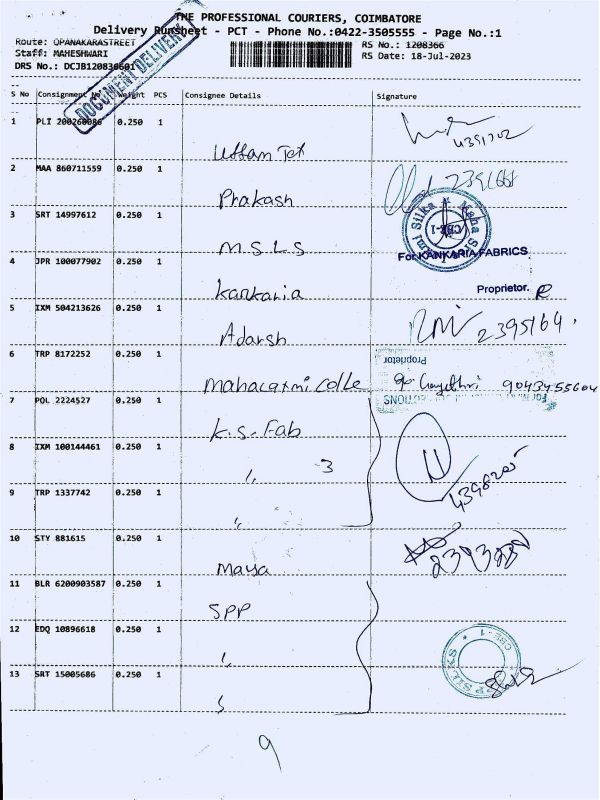 THE PROFESSIONAL COURIERS, COIMBATORE
Delivery Runsheet - PCT - Phone No.:0422-3505555 - Page No.:1
Route: OPANAKARASTREET
Staff: MAHESHWARI
DRS No.: DCJB120830601
RS No.: 1208366
RS Date: 18-Jul-2023
DOCUMENT DELIVERY
S No Consignment No Weight PCS Consignee Details Signature
1 PLI 200260086 0.250 1 Uttam Tex 4391702
2 MAA 860711559 0.250 1 Prakash 2391668
3 SRT 14997612 0.250 1 M.S.L.S
4 JPR 100077902 0.250 1 Kankaria For KANKARIA FABRICS
Proprietor.
5 IXM 504213626 0.250 1 Adarsh 2395164.
6 TRP 8172252 0.250 1 Mahalaxmi Colle 9043455604
Proprietor
7 POL 2224527 0.250 1 K.S. Fab
8 IXM 100144461 0.250 1 ,, 3 4398205
9 TRP 1337742 0.250 1 ,,
10 STY 881615 0.250 1 Maya
11 BLR 6200903587 0.250 1 SPP
12 EDQ 10896618 0.250 1 ,,
13 SRT 15005686 0.250 1 ,,
CBE-1
9